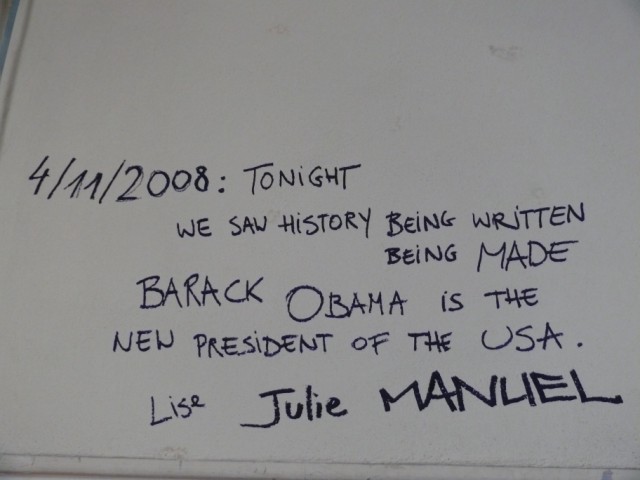 4/11/2008: TONiGHT
WE SAW HiSTORY BEiNG WRiTTEN
BEiNG MADE
BARACK OBAMA iS THE
NEW PRESiDENT OF THE USA.
Lise Julie MANUEL